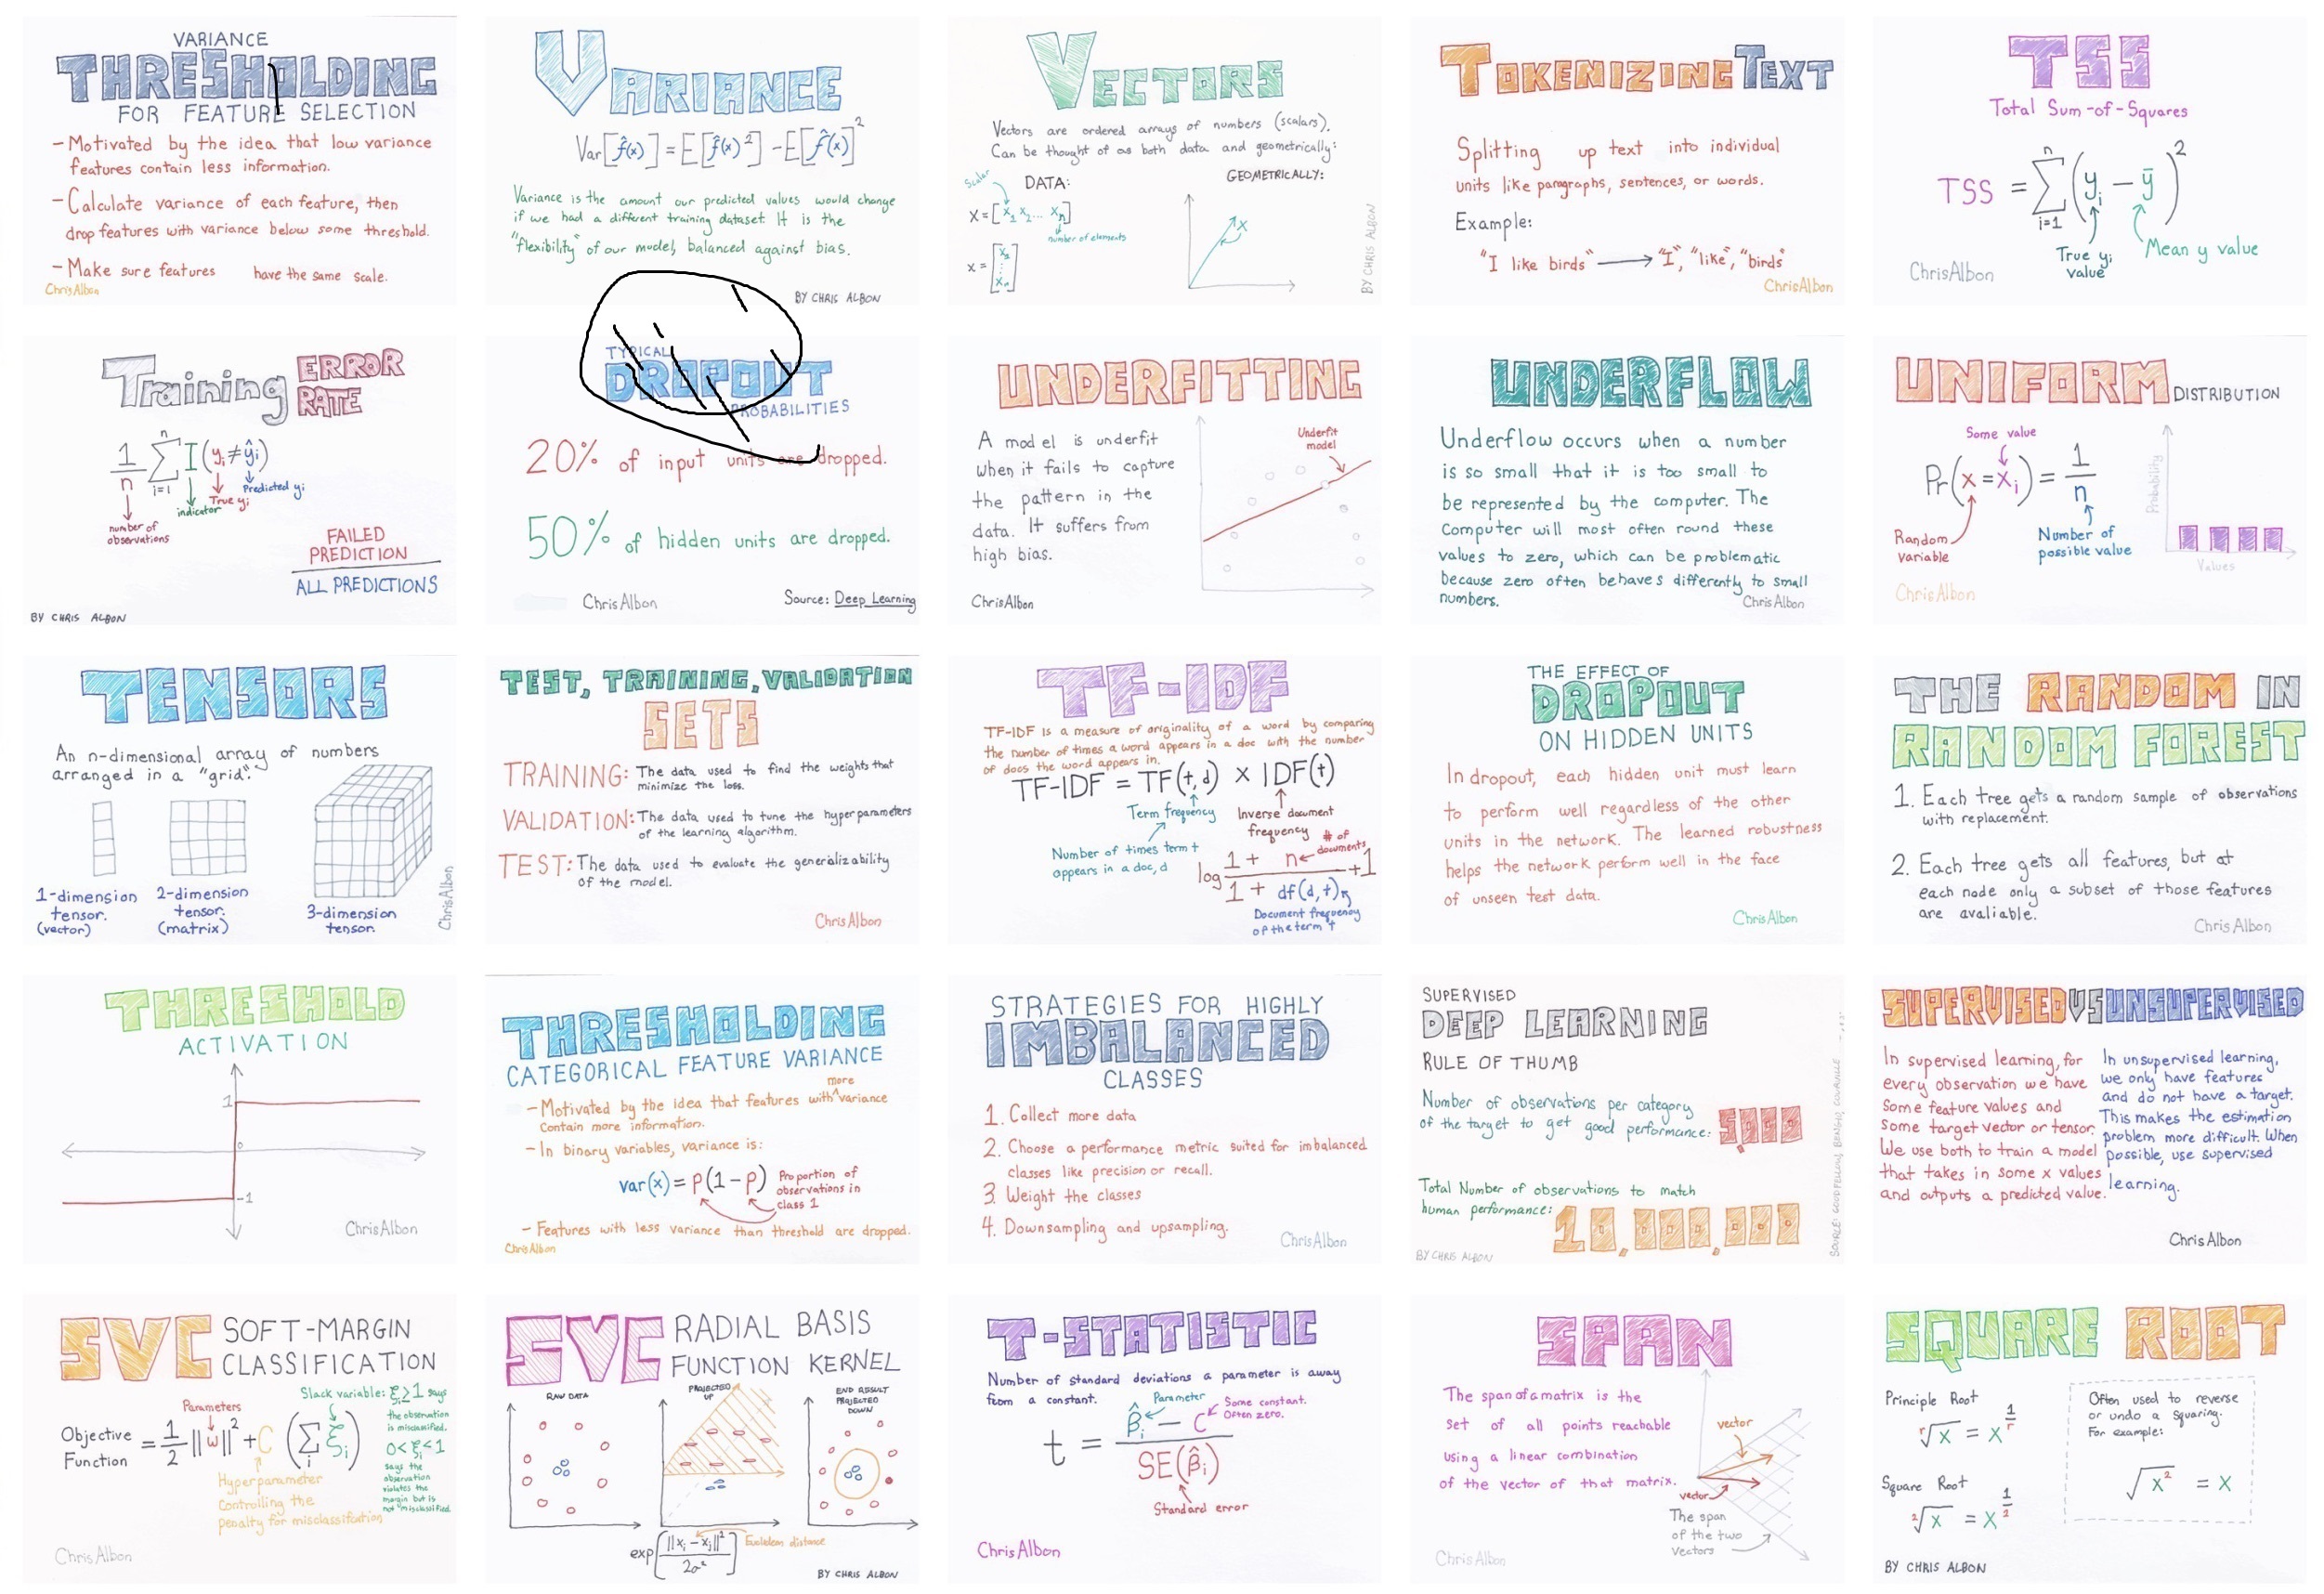 VARIANCE
THRESHOLDING
FOR FEATURE SELECTION
- Motivated by the idea that low variance
features contain less information.
- Calculate variance of each feature, then
drop features with variance below some threshold.
- Make sure features have the same scale.
ChrisAlbon
VARIANCE
Var[f̂(x)] = E[f̂(x)²] - E[f̂(x)]²
Variance is the amount our predicted values would change
if we had a different training dataset. It is the
"flexibility" of our model, balanced against bias.
BY CHRIS ALBON
VECTORS
Vectors are ordered arrays of numbers (scalars).
Can be thought of as both data and geometrically:
Scalar
DATA:
GEOMETRICALLY:
X = [x₁ x₂ ... xₙ]
number of elements
X = [x₁ ⋮ xₙ]
X
BY CHRIS ALBON
TOKENIZING TEXT
Splitting up text into individual
units like paragraphs, sentences, or words.
Example:
"I like birds" → "I", "like", "birds"
ChrisAlbon
TSS
Total Sum-of-Squares
TSS = Σ (yᵢ - ȳ)²
n
i=1
True yᵢ
value
Mean y value
ChrisAlbon
Training ERROR
RATE
1/n Σ I(yᵢ ≠ ŷᵢ)
n
i=1
number of
observations
indicator
True yᵢ
Predicted yᵢ
FAILED
PREDICTION
ALL PREDICTIONS
BY CHRIS ALBON
TYPICAL
DROPOUT
PROBABILITIES
20% of input units are dropped.
50% of hidden units are dropped.
ChrisAlbon
Source: Deep Learning
UNDERFITTING
A model is underfit
when it fails to capture
the pattern in the
data. It suffers from
high bias.
Underfit
model
ChrisAlbon
UNDERFLOW
Underflow occurs when a number
is so small that it is too small to
be represented by the computer. The
Computer will most often round these
values to zero, which can be problematic
because zero often behaves differently to small
numbers.
ChrisAlbon
UNIFORM DISTRIBUTION
Some value
Pr(x = xᵢ) = 1/n
Random
variable
Number of
possible value
Probability
Values
ChrisAlbon
TENSORS
An n-dimensional array of numbers
arranged in a "grid".
1-dimension
tensor.
(vector)
2-dimension
tensor.
(matrix)
3-dimension
tensor.
ChrisAlbon
TEST, TRAINING, VALIDATION
SETS
TRAINING: The data used to find the weights that
minimize the loss.
VALIDATION: The data used to tune the hyperparameters
of the learning algorithm.
TEST: The data used to evaluate the generalizability
of the model.
ChrisAlbon
TF-IDF
TF-IDF is a measure of originality of a word by comparing
the number of times a word appears in a doc with the number
of docs the word appears in.
TF-IDF = TF(t,d) × IDF(t)
Term frequency
Inverse document
frequency
Number of times term t
appears in a doc, d
# of
documents
log (1 + n)/(1 + df(d,t)) + 1
Document frequency
of the term t
THE EFFECT OF
DROPOUT
ON HIDDEN UNITS
In dropout, each hidden unit must learn
to perform well regardless of the other
units in the network. The learned robustness
helps the network perform well in the face
of unseen test data.
ChrisAlbon
THE RANDOM IN
RANDOM FOREST
1. Each tree gets a random sample of observations
with replacement.
2. Each tree gets all features, but at
each node only a subset of those features
are avaliable.
Chris Albon
THRESHOLD
ACTIVATION
1
0
-1
ChrisAlbon
THRESHOLDING
CATEGORICAL FEATURE VARIANCE
- Motivated by the idea that features with more variance
Contain more information.
- In binary variables, variance is:
var(x) = p(1-p)
Proportion of
observations in
class 1
- Features with less variance than threshold are dropped.
Chris Albon
STRATEGIES FOR HIGHLY
IMBALANCED
CLASSES
1. Collect more data
2. Choose a performance metric suited for imbalanced
classes like precision or recall.
3. Weight the classes
4. Downsampling and upsampling.
ChrisAlbon
SUPERVISED
DEEP LEARNING
RULE OF THUMB
Number of observations per category
of the target to get good performance: 5,000
Total Number of observations to match
human performance: 10,000,000
BY CHRIS ALBON
SOURCE: GOODFELLOW, BENGIO, COURVILLE
SUPERVISED VS UNSUPERVISED
In supervised learning, for
every observation we have
Some feature values and
some target vector or tensor.
We use both to train a model
that takes in some x values
and outputs a predicted value.
In unsupervised learning,
we only have features
and do not have a target.
This makes the estimation
problem more difficult. When
possible, use supervised
learning.
Chris Albon
SVC SOFT-MARGIN
CLASSIFICATION
Slack variable: ξᵢ ≥ 1 says
the observation
is misclassified.
0 < ξᵢ < 1
says the
observation
violates the
margin but is
not misclassified.
Parameters
Objective
Function = 1/2 ||w||² + C (Σ ξᵢ)
i
Hyperparameter
Controlling the
penalty for misclassification
ChrisAlbon
SVC RADIAL BASIS
FUNCTION KERNEL
RAW DATA
PROJECTED
UP
END RESULT
PROJECTED
DOWN
exp[||xᵢ - xⱼ||²/2σ²]
Euclidean distance
BY CHRIS ALBON
T-STATISTIC
Number of standard deviations a parameter is away
from a constant.
Parameter
Some constant.
Often zero.
t = (β̂ᵢ - C)/SE(β̂ᵢ)
Standard error
ChrisAlbon
SPAN
The span of a matrix is the
set of all points reachable
using a linear combination
of the vector of that matrix.
vector
vector
The span
of the two
vectors
Chris Albon
SQUARE ROOT
Principle Root
ʳ√x = x^(1/r)
Square Root
²√x = x^(1/2)
Often used to reverse
or undo a squaring.
For example:
√x² = x
BY CHRIS ALBON